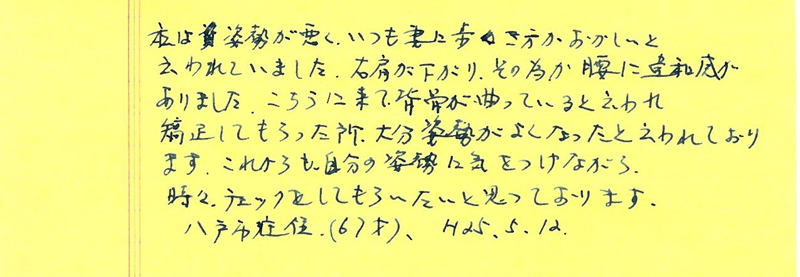 私は姿勢が悪く、いつも妻に歩き方がおかしいと
云われていました。右肩が下がり、その為か腰に違和感が
ありました。こちらに来て背骨が曲っていると云われ
矯正してもらった所、大分姿勢がよくなったと云われており
ます。これからも自分の姿勢に気をつけながら、
時々、チェックをしてもらいたいと思っております。
八戸市在住。(67才)、H25.5.12.